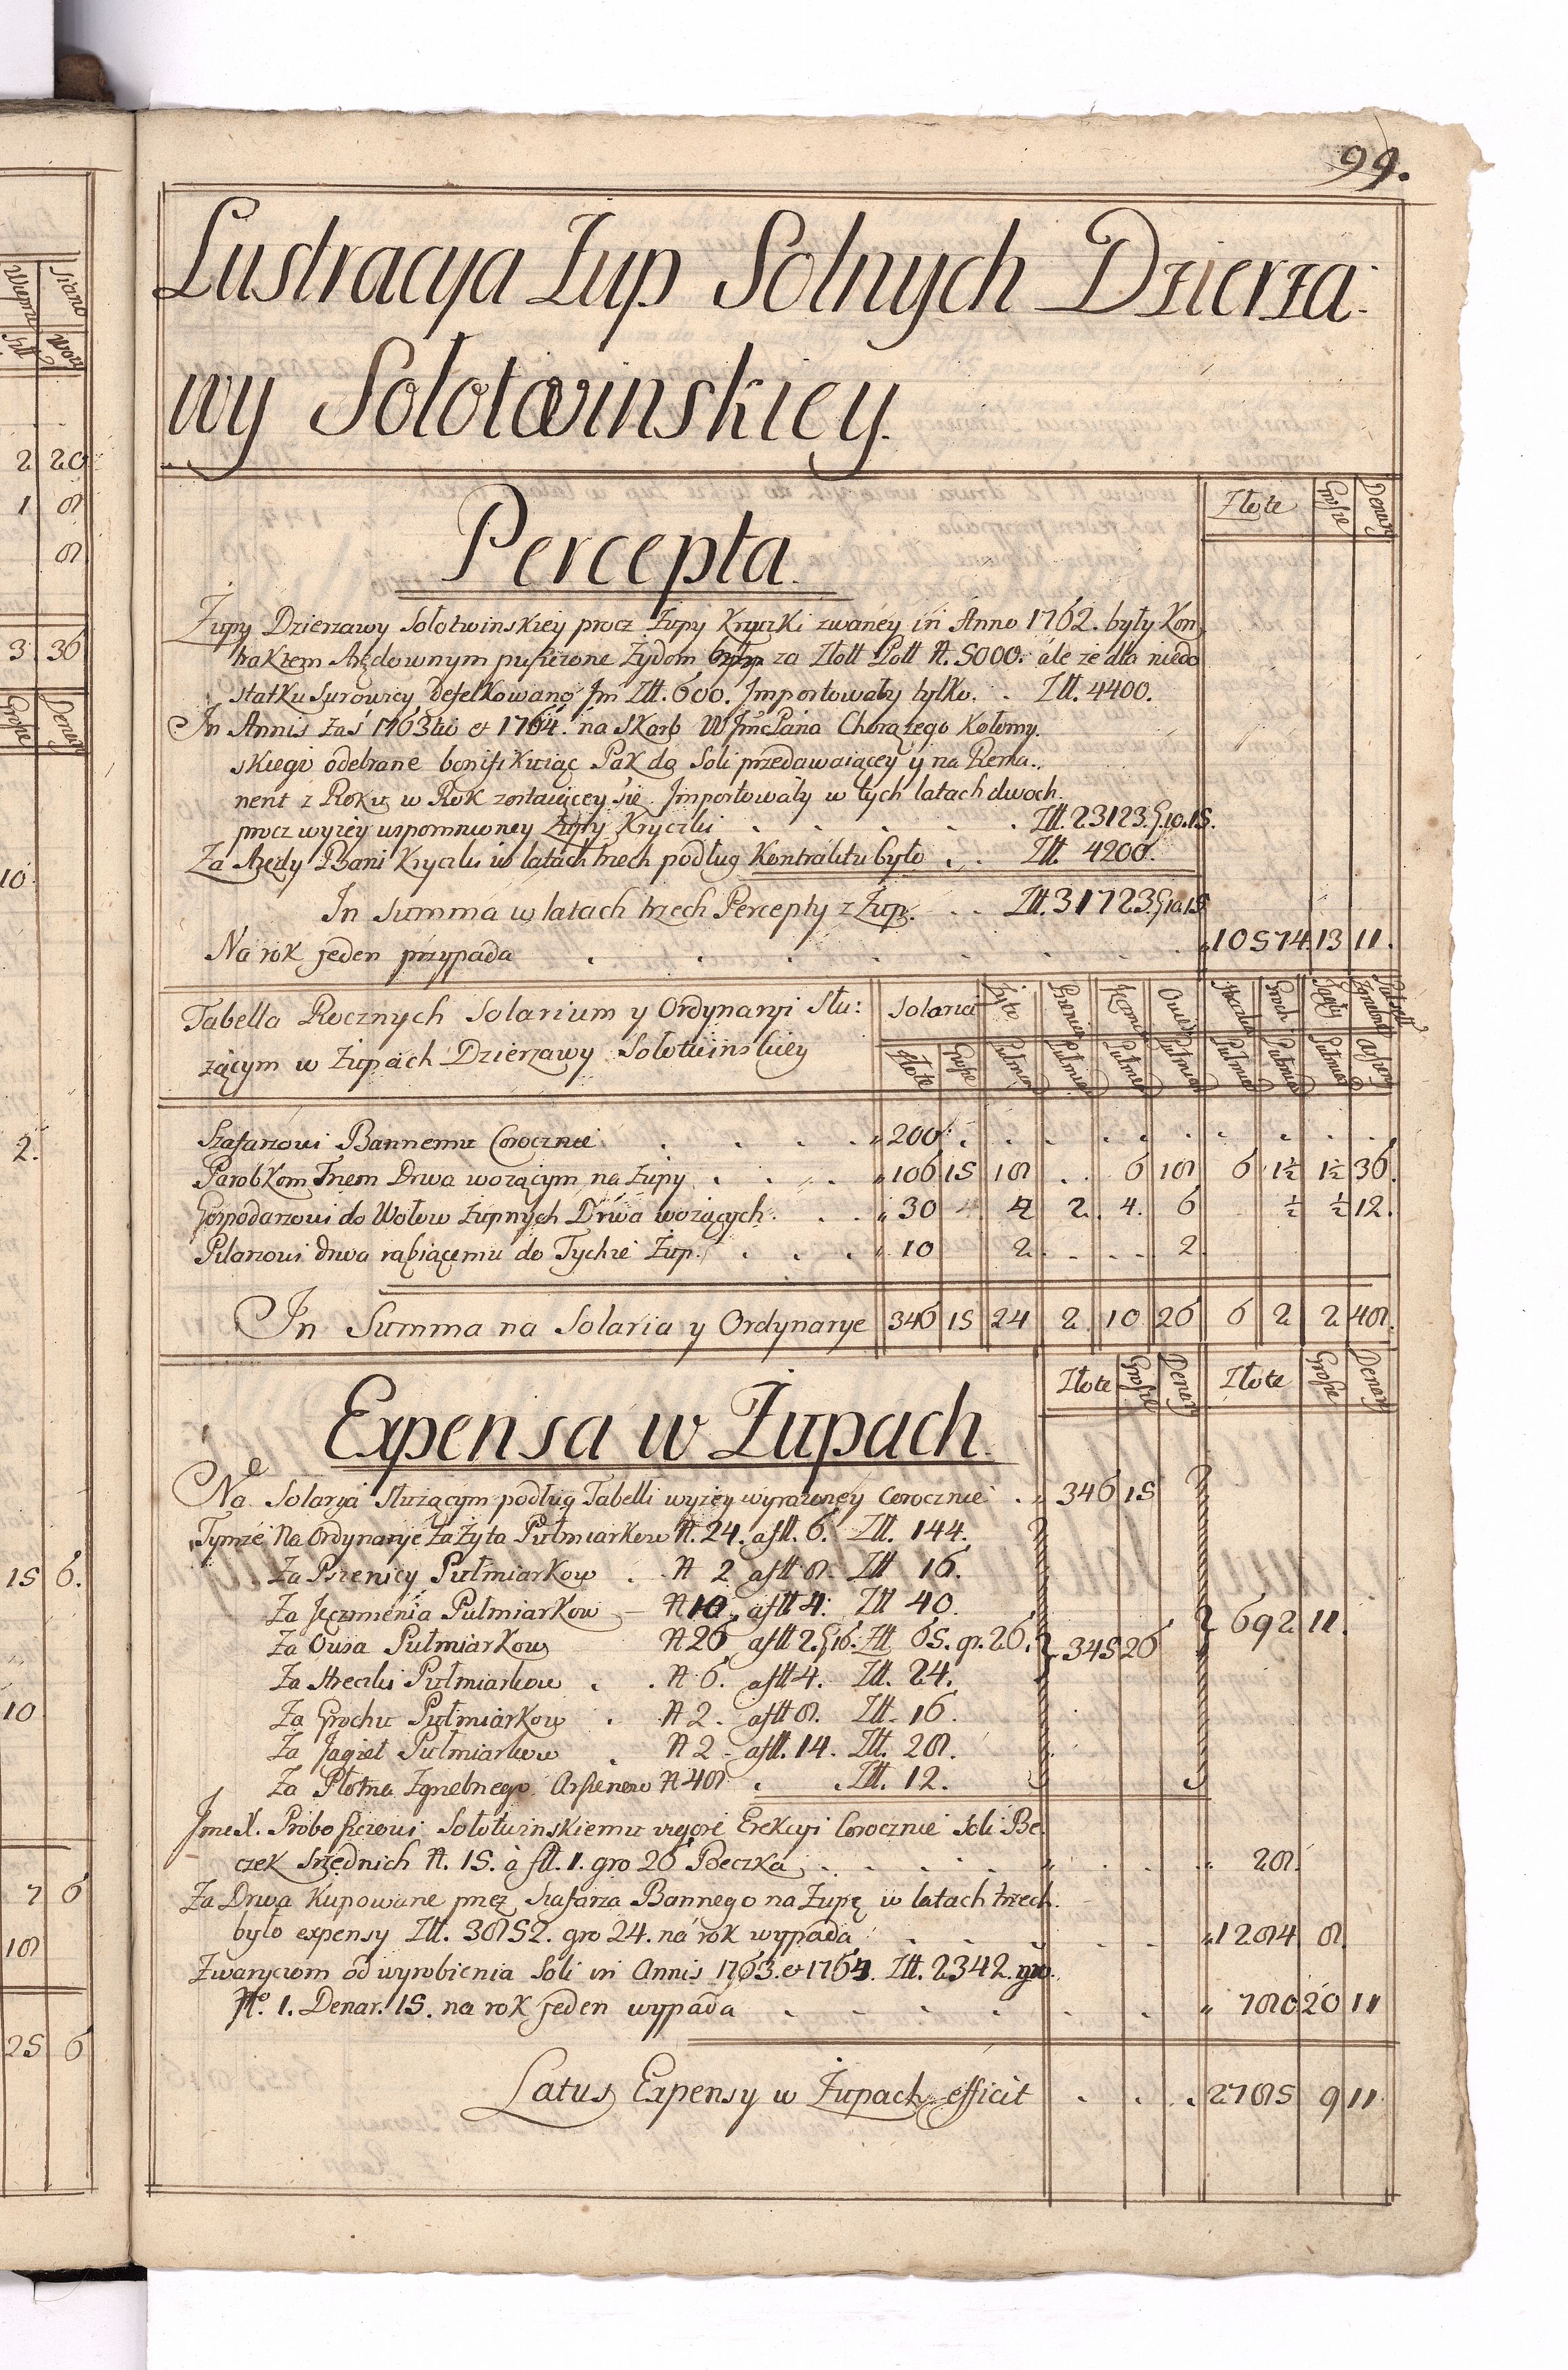 99.
Lustracya Zup Solnych Dzierża-
wy Sołotwinskiey.
Złote Grosze Denary
Percepta.
Żupy Dzierzawy Sołotwinskiey procz Żupy Kryczki zwaney in Anno 1762. były Kon
traktem Arędownym puszczone Żydom za Złott Poll N. 5000. ale że dla niedo
statku Surowicy defalkowano Jm Złł. 600. Importowały tylko. . Złł. 4400.
In Annis zaś 1763tio et 1764. na Skarb W JmcPana Chorążego Kołomy.
skiego odebrane bonifikuiąc Pak do Soli przedawaiącey y na Rema..
nent z Roku w Rok zostaiącey się. Importowały w tych latach dwoch.
procz wyżey wspomnioney Żupy Kryczki . . . . Złł. 23123. g. 10. 15.
Za Arędy Bani Kryczki w latach trzech podług Kontraktu było . . Złł. 4200.
In Summa w latach trzech Percepty z Żup. . . Złł. 31723. g 10. 15
Na rok jeden przypada . . . . . . . 10574. 13 11.
Tabella Rocznych Solarium y Ordynaryi Słu:
żącym w Żupach Dzierzawy Sołotwinskiey
Solaria Żyta Pszenicy Jęczmie Owies Hreczki Groch Jagły Płotna Zgrzebne
Złote Grosze Pułmiar Pułmiar Pułmiar Pułmiar Pułmiar Pułmiar Pułmiar Arszeny
Szafarzowi Bannemu Corocznie . . . . 200 . . . . . . . . .
Parobkom Trzem Drwa wożącym na Żupy . . . . 106 15 18 . . 6 18 6 1½ 1½ 36.
Gospodarzowi do Wołow Żupnych Drwa wożących . . . 30 4 2. 4. 6 ½ ½ 12.
Pilarzowi drwa rąbiącemu do Tychże Żup. . . . 10 2. . . . 2.
In Summa na Solaria y Ordynarye 346 15 24 2. 10 26 6 2 2 48.
Złote Grosze Denary Złote Grosze Denary
Expensa w Żupach.
Na Solarya Służącym podług Tabelli wyżey wyrażoney Corocznie . . 346 15
Tymże Na Ordynarye Za Żyta Pułmiarkow N. 24. a fłł. 6. Złł. 144.
Za Pszenicy Pułmiarkow . N 2 a fłł 8. Złł 16.
Za Jęczmienia Pułmiarkow N 10. a fłł 4. Złł 40.
Za Owsa Pułmiarkow N 26 a fłł 2. g 16. Złł 65. gr. 26. 345 26 692 11.
Za Hreczki Pułmiarkow . . N 6. a fłł 4. Złł. 24.
Za Grochu Pułmiarkow . N 2. a fłł 8. Złł. 16.
Za Jagieł Pułmiarkow . N 2 - a fłł. 14. Złł. 28.
Za Płotna Zgrzebnego Arszenow N 48 . . Złł. 12.
Jme X. Proboszczowi Sołotwinskiemu vigore Erekcyi Corocznie Soli Be.
czek Srzednich N. 15. a fłł. 1. gro 26 Beczka . . . . . 28.
Za Drwa Kupowane przez Szafarza Bannego na Żupę w latach trzech.
było expensy Złł. 3852. gro 24. na rok wypada . . . . 1284 8.
Zwaryczom od wyrobienia Soli in Annis 1763. et 1764. Złł. 2342. gro.
No. 1. Denar. 15. na rok jeden wypada . . . . . 780 20 11
Latus Expensy w Żupach efficit . . . 2785 9 11.